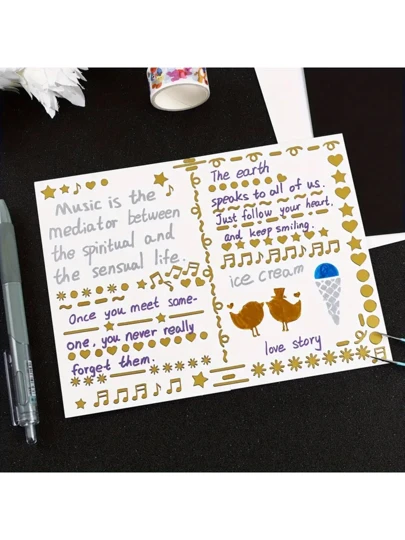 Music is the
mediator between
the spiritual and
the sensual life.
Once you meet some-
one, you never really
forget them.
The earth
speaks to all of us.
Just follow your heart,
and keep smiling.
ice cream
love story